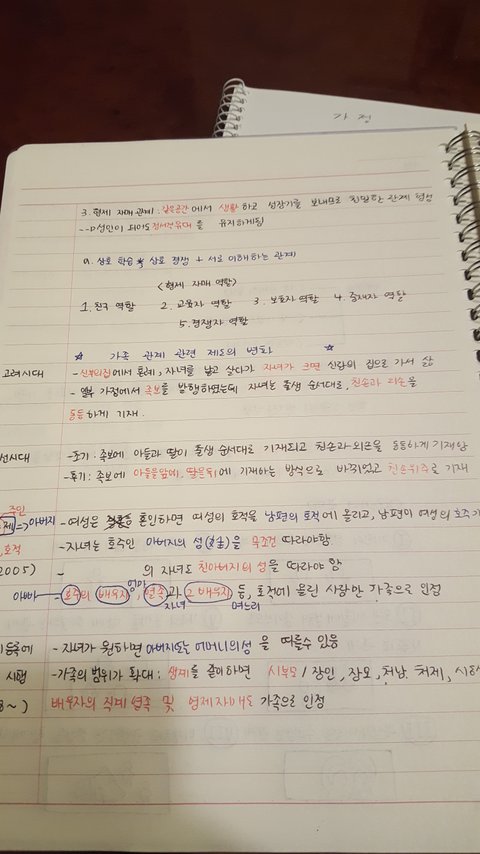 가 정
3. 형제 자매 관계 : 같은공간에서 생활하고 성장기를 보내므로 친밀한 관계 형성
--▷성인이 되어도 정서적유대를 유지하게됨
a. 상호 학습 * 상호 경쟁 + 서로 이해하는 관계
<형제 자매 역할>
1. 친구 역할 2. 교육자 역할 3. 보호자 역할 4. 중재자 역할
5. 경쟁자 역할
☆ 가족 관계 관련 제도의 변화 ☆
고려시대 - 신부의집에서 혼례, 자녀를 낳고 살다가 자녀가 크면 신랑의 집으로 가서 삶
- 일부 가정에서 족보를 발행하였는데 자녀는 출생 순서대로, 친손과 외손을
동등하게 기재.
선시대 - 초기 : 족보에 아들과 딸이 출생 순서대로 기재되고 친손과 외손을 동등하게 기재함
- 후기 : 족보에 아들을앞에, 딸은뒤에 기재하는 방식으로 바뀌었고 친손위주로 기재
주인
제 => 아버지 - 여성은 혼인하면 여성의 호적을 남편의 호적에 올리고, 남편이 여성의 호주가
호적 - 자녀는 호주인 아버지의 성(姓)을 무조건 따라야함
2005) - 의 자녀도 친아버지의 성을 따라야 함
엄마
아빠 호주의 배우자, 혈족과 그 배우자 등, 호적에 올린 사람만 가족으로 인정
자녀 며느리
등록에 - 자녀가 원하면 아버지또는 어머니의성을 따를수 있음
시행 - 가족의 범위가 확대 : 생계를 같이하면 시부모 / 장인, 장모, 처남, 처제,
8~) 배우자의 직계 혈족 및 형제자매도 가족으로 인정